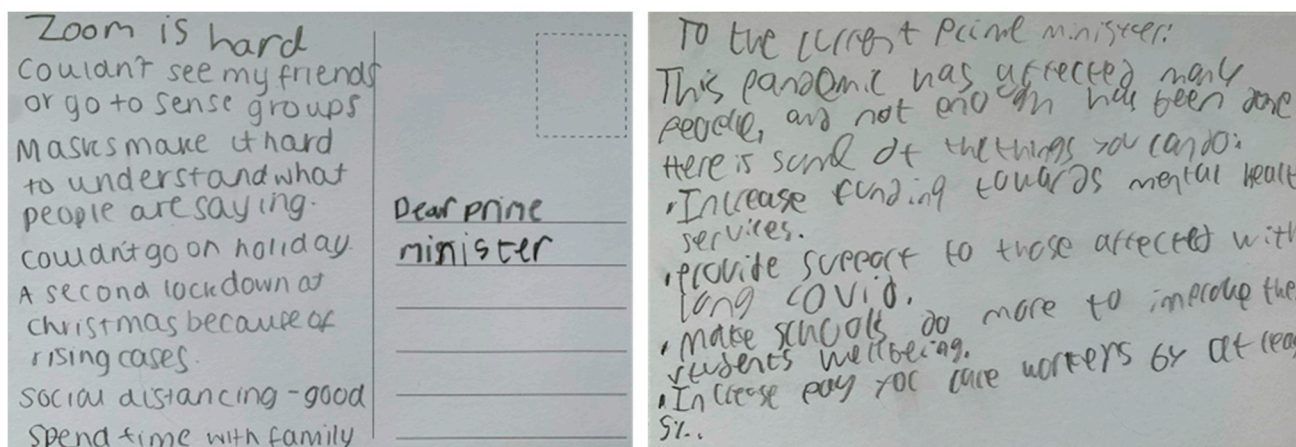 Zoom is hard
Couldn't see my friends
or go to sense groups
Masks make it hard
to understand what
people are saying.
couldn't go on holiday.
A second lockdown at
christmas because of
rising cases.
social distancing - good
spend time with family
Dear prime
minister
To the current Prime minister:
This pandemic has affected many
people, and not enough has been done
Here is some of the things you can do:
• Increase funding towards mental healt
services.
• provide support to those affected with
long covid.
• make schools do more to improve the
students wellbeing.
• Increase pay for care workers by at leas
5%.